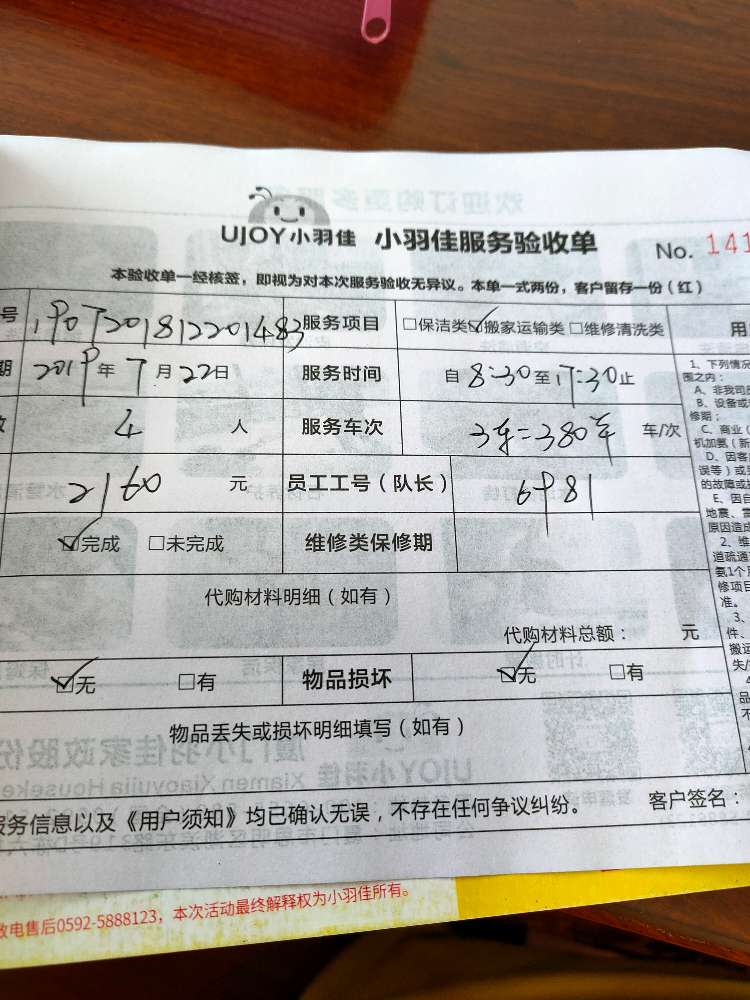 UJOY小羽佳 小羽佳服务验收单 No. 141
本验收单一经核签，即视为对本次服务验收无异议。本单一式两份，客户留存一份（红）
号 服务项目 □保洁类☑搬家运输类□维修清洗类 用
期 2019年7月22日 服务时间 自8:30至17:30止
4人 服务车次 3车=380 车/次
2160元 员工工号（队长） 6981
☑完成 □未完成 维修类保修期
代购材料明细（如有）
代购材料总额： 元
☑无 □有 物品损坏 ☑无 □有
物品丢失或损坏明细填写（如有）
服务信息以及《用户须知》均已确认无误，不存在任何争议纠纷。 客户签名：
1、下列情况
围之内：
A、非我司
B、设备或
修期；
C、商业（
机加氨（新
D、因客
误等）或
的故障或
E、因自
地震、雷
原因造成
2、维
道疏通
氨1个月
修项目
准。
3、
件、
搬运
失/
品
不
致电售后0592-5888123，本次活动最终解释权为小羽佳所有。